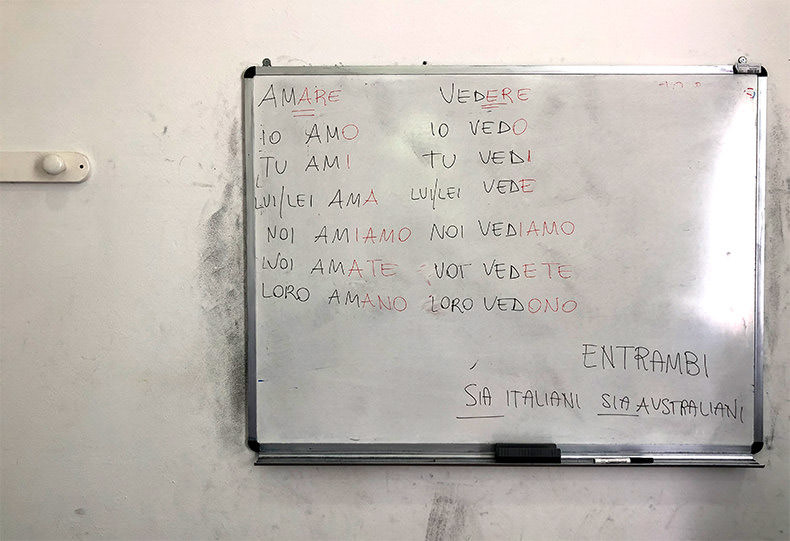 AMARE VEDERE
IO AMO IO VEDO
TU AMI TU VEDI
LUI/LEI AMA LUI/LEI VEDE
NOI AMIAMO NOI VEDIAMO
VOI AMATE VOI VEDETE
LORO AMANO LORO VEDONO
ENTRAMBI
SIA ITALIANI SIA AUSTRALIANI